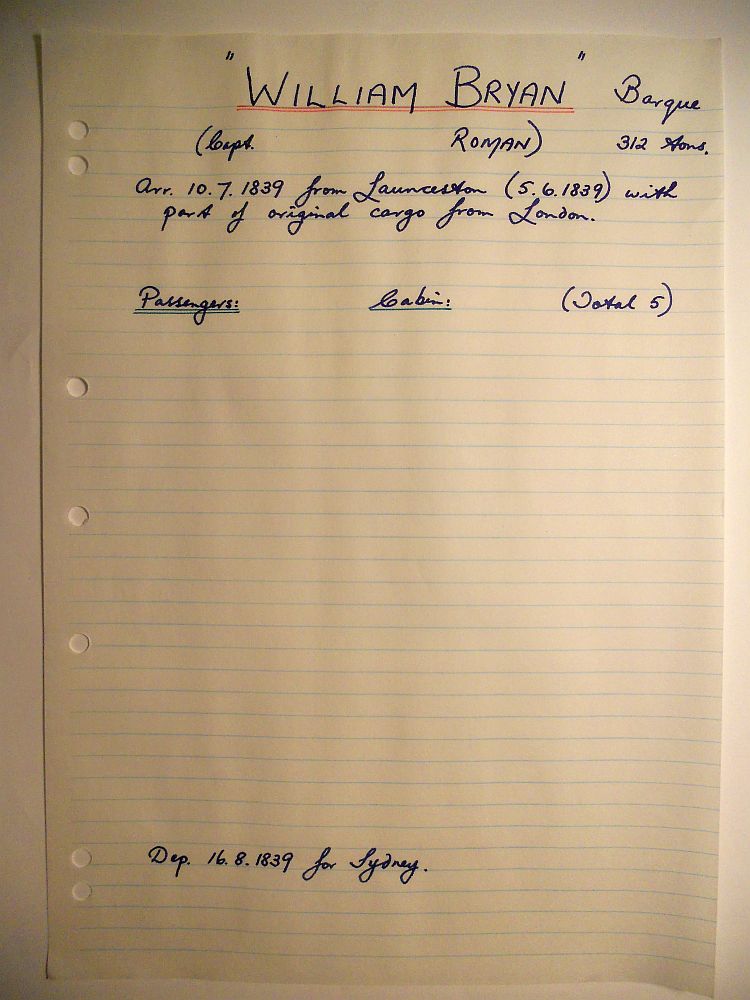 "WILLIAM BRYAN" Barque
(Capt. ROMAN) 312 tons.
Arr. 10.7.1839 from Launceston (5.6.1839) with
part of original cargo from London.
Passengers: Cabin: (Total 5)
Dep. 16.8.1839 for Sydney.